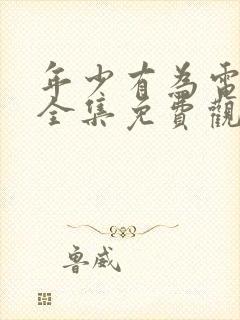 年少有為電
全集免費觀
魯威